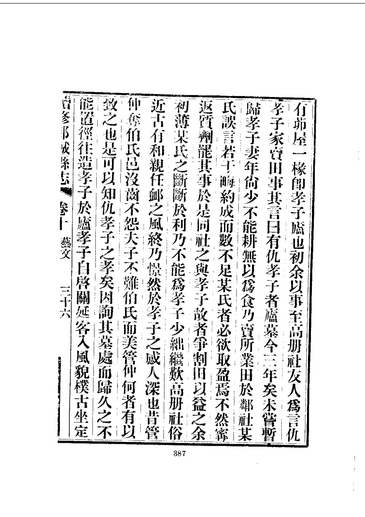 有茆屋一椽卽孝子廬也初余以事至高册社友人爲言仇
孝子家賣田事其言曰有仇孝子者廬墓今三年矣未嘗暫
歸孝子妻年尙少不能耕無以爲食乃賣所業田於鄰社某
氏誤言若干畮約成而數不足某氏者必欲取盈焉不然寗
返質劑罷其事於是同社之與孝子故者爭割田以益之余
初薄某氏之斷斷於利乃不能爲孝子少絀繼歎高册社俗
近古有和親任䘏之風終乃憬然於孝子之感人深也昔管
仲奪伯氏邑沒齒不怨夫子不難伯氏而美管仲何者有以
致之也是可以知仇孝子之孝矣因詢其墓處而歸久之不
能置徑往造孝子於廬孝子自啓關延客入風貌樸古坐定
續修鄄城縣志
卷十
藝文
三十六
387